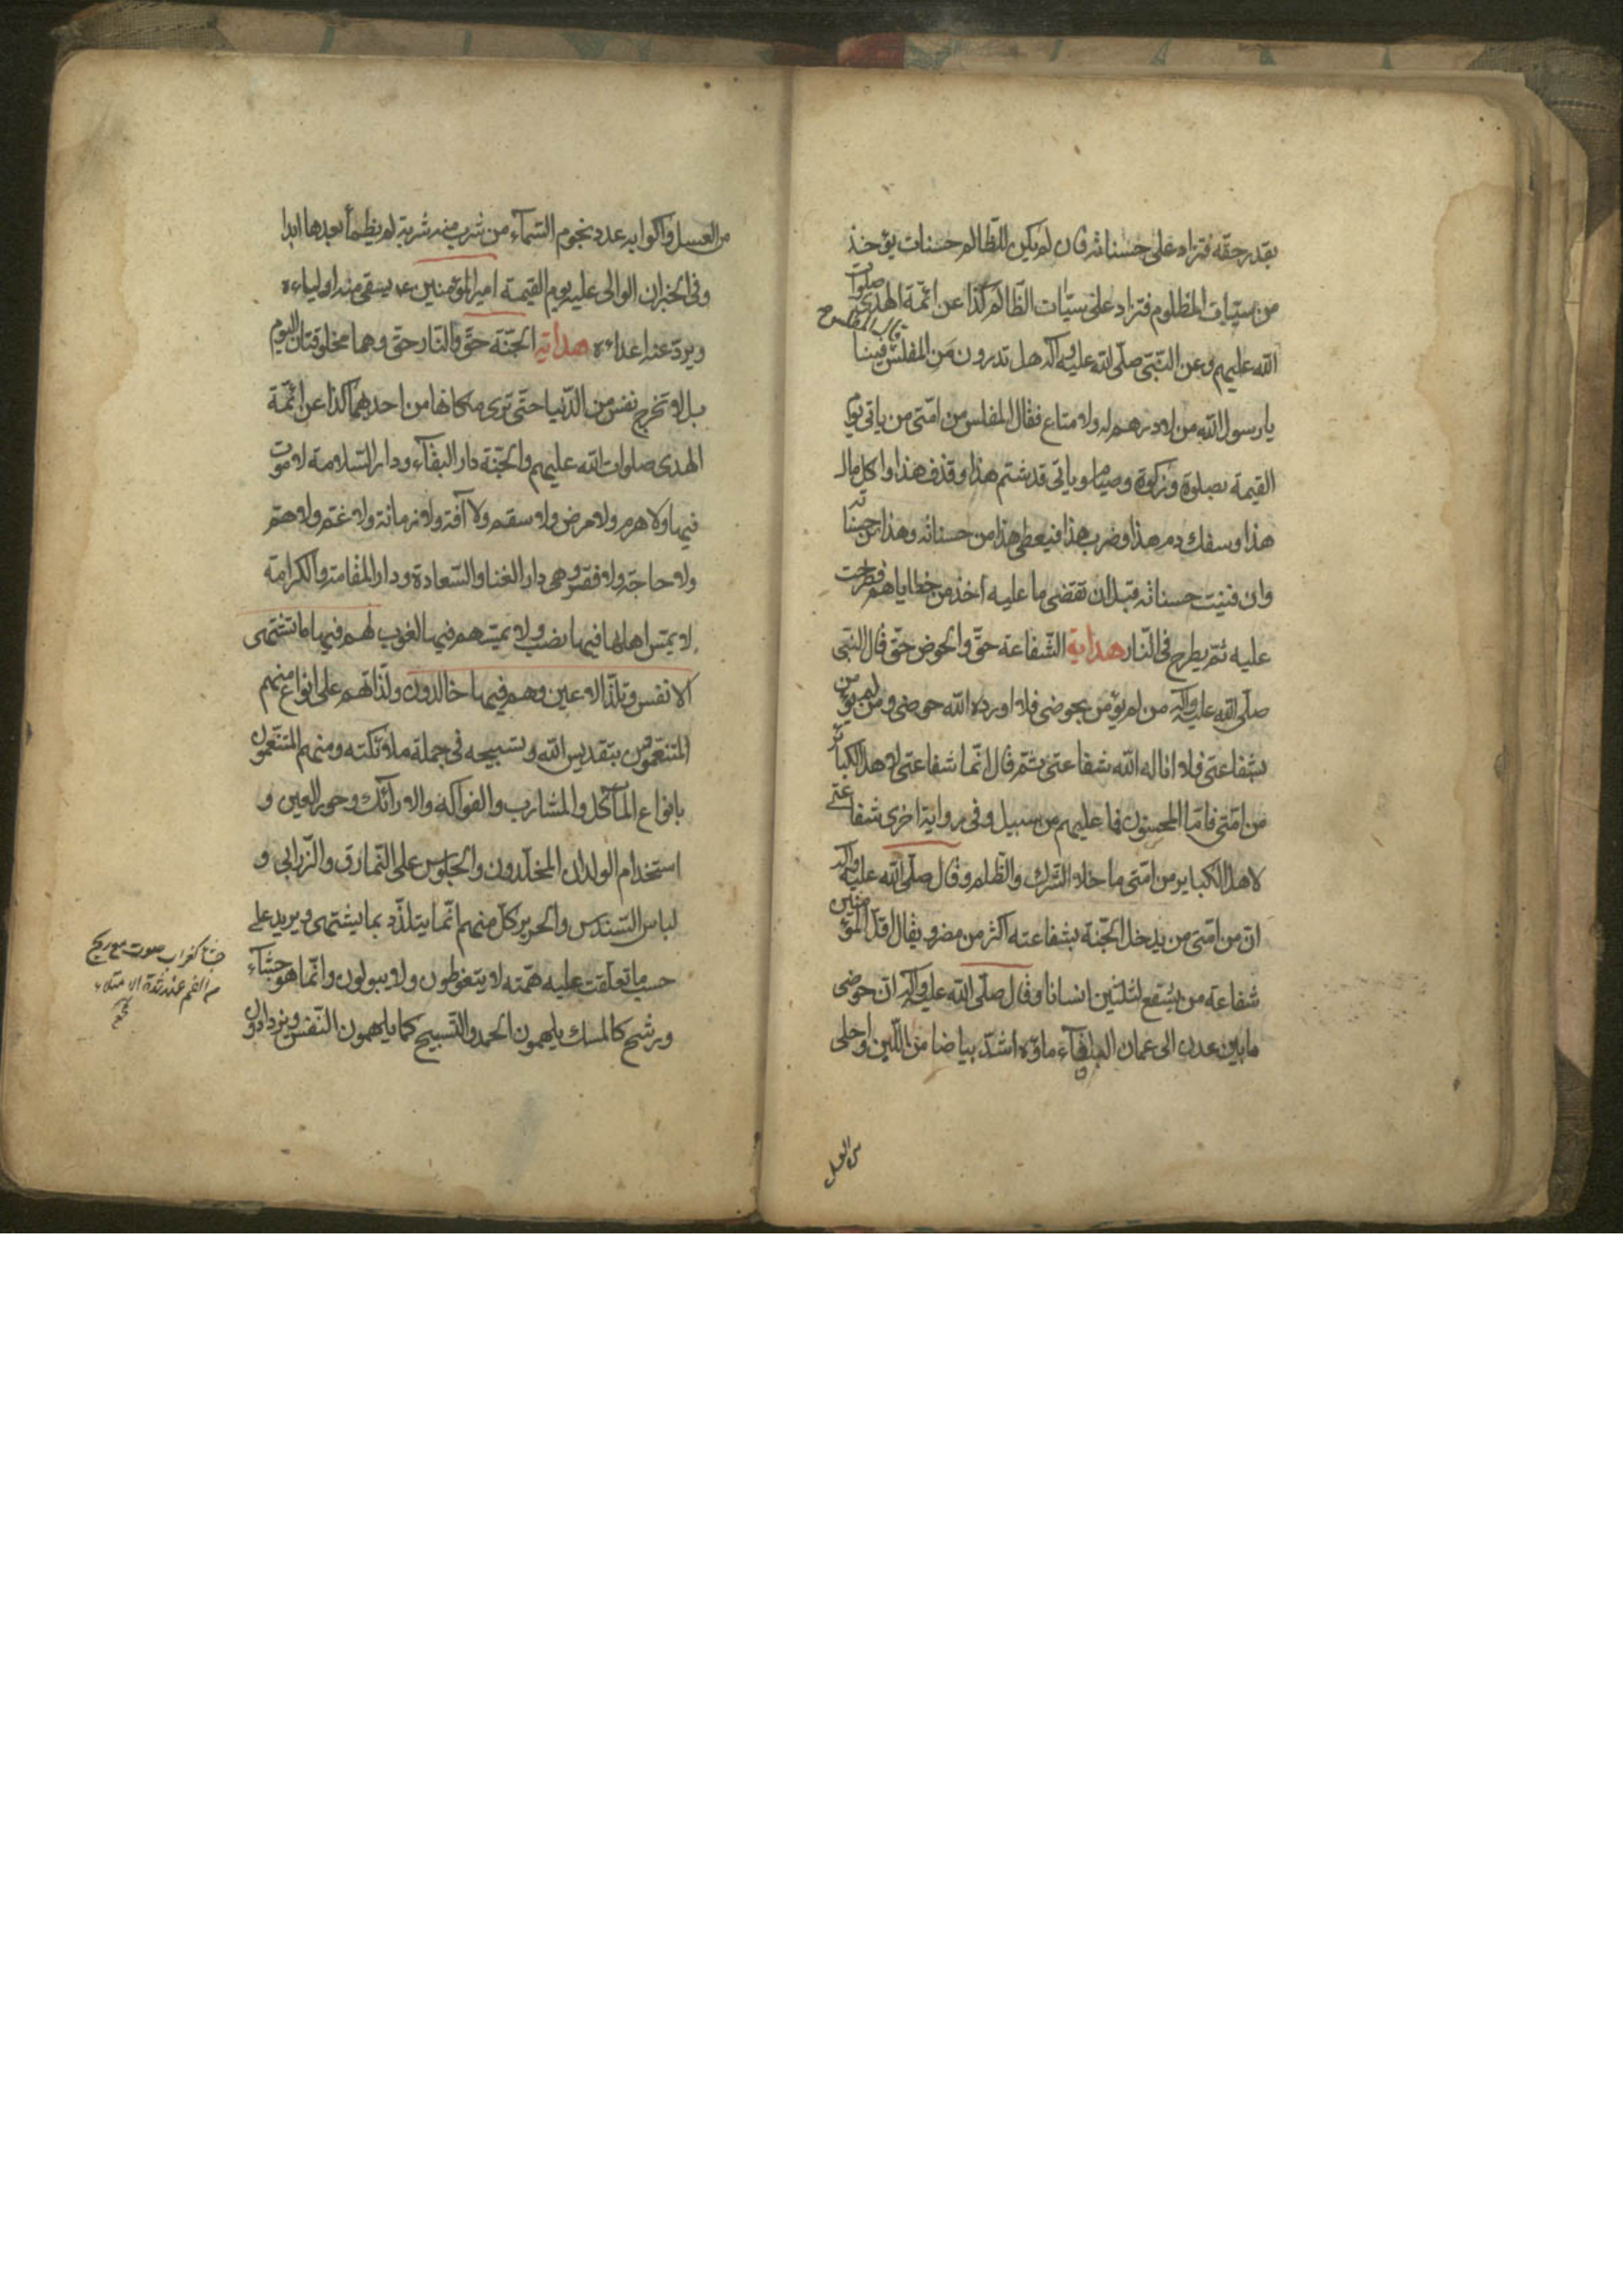 بقدر حقه فتزاد على حسناته فان لم يكن للظالم حسنات يؤخذ
من سيّات المظلوم فتزاد على سيّات الظّالم كذا عن ائمّة الهدى صلوات
الله عليهم وعن النّبّى صلّى الله عليه وآله هل تدرون مَن المفلس قيل المفلس فينا
يا رسول الله من لا درهم له ولا متاع فقال المفلس من امّتى من ياتى يوم
القيمة بصلوة وزكوة وصيام وياتى قد شتم هذا وقذف هذا واكل مال
هذا وسفك دم هذا وضرب هذا فيعطى هذا من حسناته وهذا من حسناته
وان فنيت حسناته قبل ان تقضى ما عليه اخذ من خطاياهم فطرحت
عليه ثمّ يطرح فى النّار هداية الشّفاعة حقّ والحوض حقّ قال النّبى
صلّى الله عليه وآله من لم يؤمن بحوضى فلا اورده الله حوضى ومن لم يؤمن
بشفاعتى فلا اناله الله شفاعتى ثمّ قال انّما شفاعتى لاهل الكبائر
من امّتى فامّا المحسنون فما عليهم من سبيل وفى رواية اخرى شفاعتى
لاهل الكباير من امّتى ما خلا الشّرك والظّلم وقال صلّى الله عليه وآله
انّ من امّتى من يدخل الجنّة بشفاعته اكثر من مضر ويقال اقلّ المؤمنين
شفاعة من يشفع لثلثين انسانا وقال صلّى الله عليه وآله ان حوضى
ما بين عدن الى عمان البلقآء ماؤه اشدّ بياضا من اللّبن واحلى
من العسل
من العسل واكوابه عدد نجوم السّمآء من شرب منه شربة لم يظمأ بعدها ابدا
وفى الخبر ان الوالى عليه يوم القيمة امير المؤمنين عم يسقى منه اولياءه
ويردّ عنه اعداءه هداية الجنّة حقّ والنّار حقّ وهما مخلوقتان اليوم
بل لا تخرج نفس من الدّنيا حتّى ترى مكانها من احدهما كذا عن ائمّة
الهدى صلوات الله عليهم والجنّة دار البقآء ودار السّلامة لا موت
فيها ولا هرم ولا مرض ولا سقم ولا آفة ولا زمانة ولا غمّ ولا همّ
ولا حاجة ولا فقر وهى دار الغنا والسّعادة ودار المقامة والكرامة
لا يمسّ اهلها فيها نصب ولا يمسّهم فيها لغوب لهم فيها ما تشتهى
الانفس وتلذّ الاعين وهم فيها خالدون ولذّاتهم على انواع منهم
المتنعّمون بتقديس الله وتسبيحه فى جملة ملائكته ومنهم المتنعّمون
بانواع المآكل والمشارب والفواكه والارائك وحور العين و
استخدام الولدان المخلّدون والجلوس على النّمارق والزّرابى و
لباس السّندس والحرير كلّ منهم انّما يتلذّذ بما يشتهى ويريد على
حسب ما تعلّقت عليه همّته لا يتغوطون ولا يبولون وانّما هو جشآء
ورشح كالمسك يلهمون الحمد والتّسبيح كما يلهمون النّفس ويزدادون
جشا كغراب صوت مع ريح
من الفم عند شدة الامتلاء